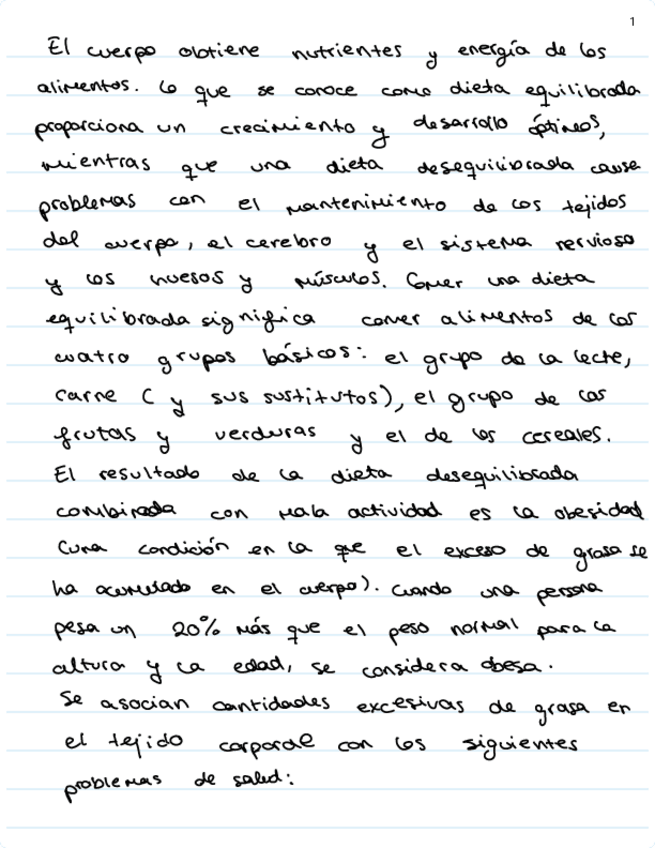 1
El cuerpo obtiene nutrientes y energía de los
alimentos. Lo que se conoce como dieta equilibrada
proporciona un crecimiento y desarrollo óptimos,
mientras que una dieta desequilibrada cause
problemas con el mantenimiento de los tejidos
del cuerpo, el cerebro y el sistema nervioso
y los huesos y músculos. Comer una dieta
equilibrada significa comer alimentos de los
cuatro grupos básicos: el grupo de la leche,
carne (y sus sustitutos), el grupo de las
frutas y verduras y el de los cereales.
El resultado de la dieta desequilibrada
combinada con mala actividad es la obesidad
(una condición en la que el exceso de grasa se
ha acumulado en el cuerpo). Cuando una persona
pesa un 20% más que el peso normal para la
altura y la edad, se considera obesa.
Se asocian cantidades excesivas de grasa en
el tejido corporal con los siguientes
problemas de salud: